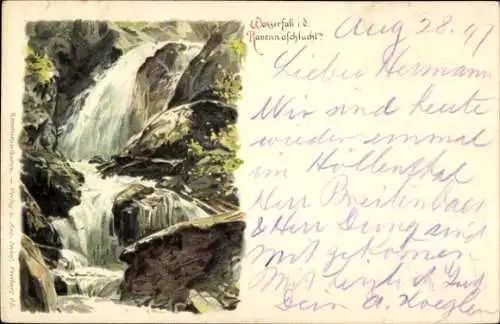 Wasserfall i. d.
Ravennaschlucht.
Aug 28. 97
Lieber Hermann
Wir sind heute
wieder einmal
im Höllenthal
Herr Breitenbach
& Herr Dung sind
mit gekomen
Mit herzl.
Dein A. Koegler
Künstlerpostkarten. – Verlag v.
Freiburg